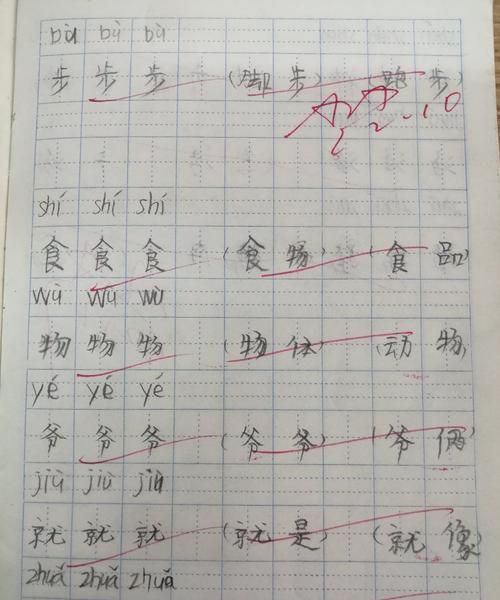 bù bù bù
步 步 步 (脚 步) (跑 步)
shí shí shí
食 食 食 (食 物) (食 品)
wù wù wù
物 物 物 (物 体) (动 物)
yé yé yé
爷 爷 爷 (爷 爷) (爷 俩)
jiù jiù jiù
就 就 就 (就 是) (就 像)
zhuǎ zhuǎ zhuǎ